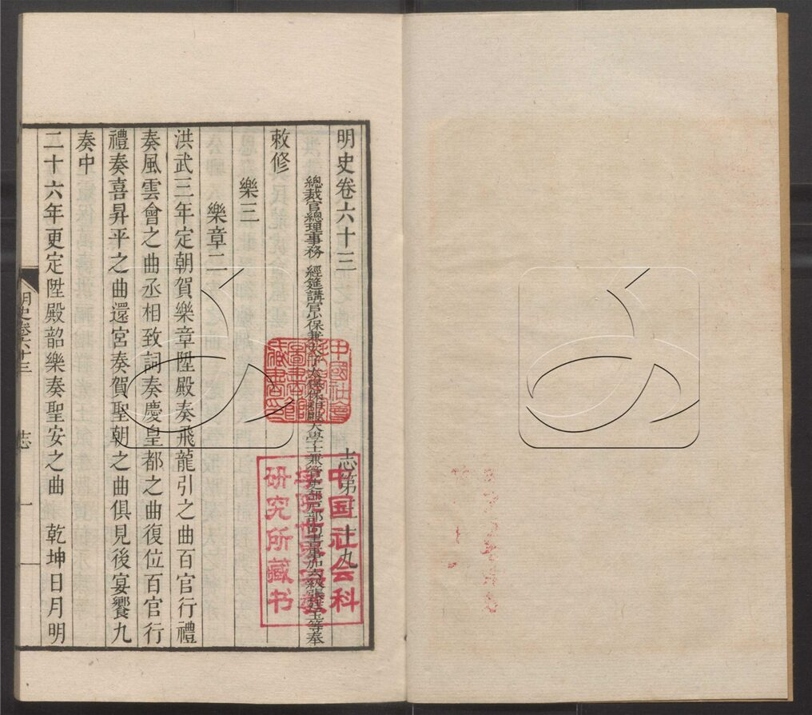 明史卷六十三
志第三十九
總裁官總理事務 經筵講官少保兼太子太保保和殿大學士兼管吏部戶部尚書事加六級張廷玉等奉
敕修
樂三
樂章二
洪武三年定朝賀樂章陞殿奏飛龍引之曲百官行禮
奏風雲會之曲丞相致詞奏慶皇都之曲復位百官行
禮奏喜昇平之曲還宮奏賀聖朝之曲俱見後宴饗九
奏中
二十六年更定陞殿韶樂奏聖安之曲 乾坤日月明
明史卷六十三
志
一
中國社會
圖書館
藏書
中国社会科
研究所藏书